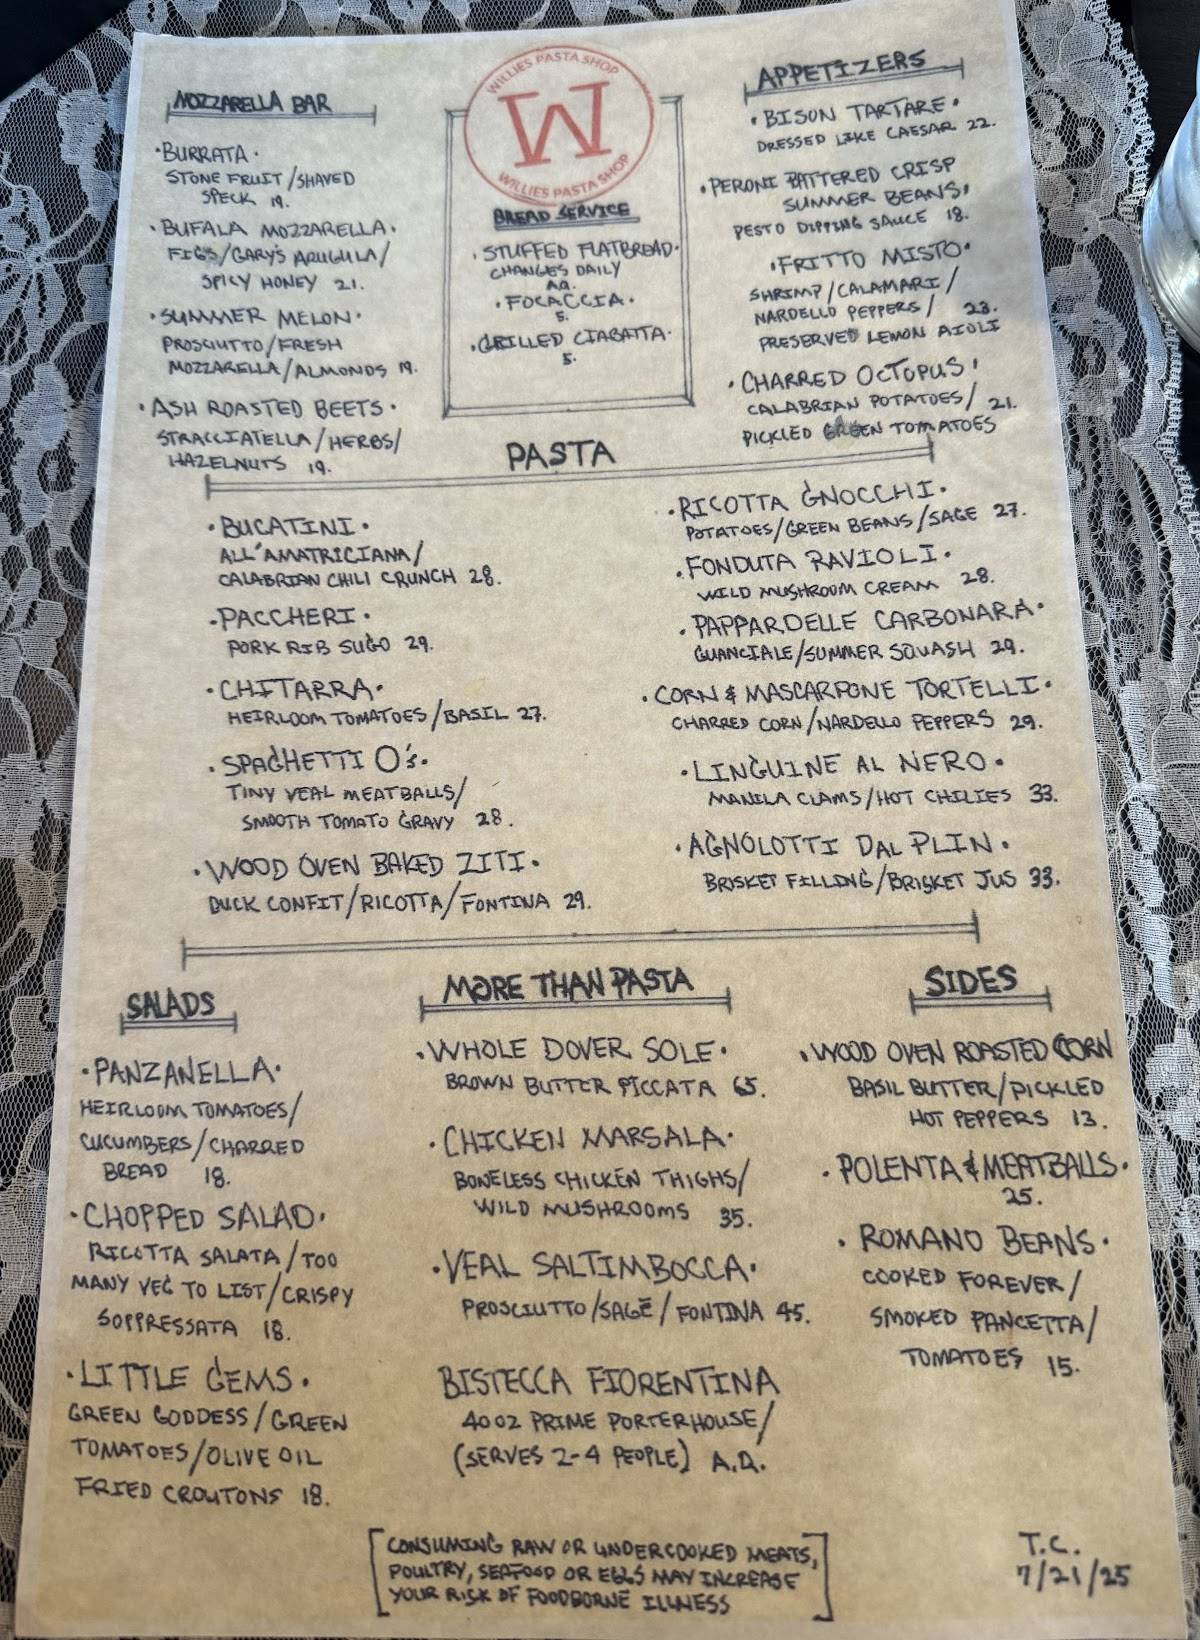 MOZZARELLA BAR
·BURRATA·
STONE FRUIT/SHAVED
SPECK 19.
·BUFALA MOZZARELLA·
FIGS/GARY'S ARUGULA/
SPICY HONEY 21.
·SUMMER MELON·
PROSCIUTTO/FRESH
MOZZARELLA/ALMONDS 19.
·ASH ROASTED BEETS·
STRACCIATELLA/HERBS/
HAZELNUTS 19.
WILLIES PASTA SHOP
W
WILLIES PASTA SHOP
BREAD SERVICE
·STUFFED FLATBREAD·
CHANGES DAILY
A.Q.
·FOCACCIA·
5.
·GRILLED CIABATTA·
5.
APPETIZERS
·BISON TARTARE·
DRESSED LIKE CAESAR 22.
·PERONI BATTERED CRISP
SUMMER BEANS·
PESTO DIPPING SAUCE 18.
·FRITTO MISTO·
SHRIMP/CALAMARI/
NARDELLO PEPPERS/ 23.
PRESERVED LEMON AIOLI
·CHARRED OCTOPUS·
CALABRIAN POTATOES/ 21.
PICKLED GREEN TOMATOES
PASTA
·BUCATINI·
ALL'AMATRICIANA/
CALABRIAN CHILI CRUNCH 28.
·PACCHERI·
PORK RIB SUGO 29.
·CHITARRA·
HEIRLOOM TOMATOES/BASIL 27.
·SPAGHETTI O's·
TINY VEAL MEATBALLS/
SMOOTH TOMATO GRAVY 28.
·WOOD OVEN BAKED ZITI·
DUCK CONFIT/RICOTTA/FONTINA 29.
·RICOTTA GNOCCHI·
POTATOES/GREEN BEANS/SAGE 27.
·FONDUTA RAVIOLI·
WILD MUSHROOM CREAM 28.
·PAPPARDELLE CARBONARA·
GUANCIALE/SUMMER SQUASH 29.
·CORN & MASCARPONE TORTELLI·
CHARRED CORN/NARDELLO PEPPERS 29.
·LINGUINE AL NERO·
MANILA CLAMS/HOT CHILIES 33.
·AGNOLOTTI DAL PLIN·
BRISKET FILLING/BRISKET JUS 33.
SALADS
·PANZANELLA·
HEIRLOOM TOMATOES/
CUCUMBERS/CHARRED
BREAD 18.
·CHOPPED SALAD·
RICOTTA SALATA/TOO
MANY VEG TO LIST/CRISPY
SOPPRESSATA 18.
·LITTLE GEMS·
GREEN GODDESS/GREEN
TOMATOES/OLIVE OIL
FRIED CROUTONS 18.
MORE THAN PASTA
·WHOLE DOVER SOLE·
BROWN BUTTER PICCATA 65.
·CHICKEN MARSALA·
BONELESS CHICKEN THIGHS/
WILD MUSHROOMS 35.
·VEAL SALTIMBOCCA·
PROSCIUTTO/SAGE/FONTINA 45.
BISTECCA FIORENTINA
40 OZ PRIME PORTERHOUSE/
(SERVES 2-4 PEOPLE) A.Q.
SIDES
·WOOD OVEN ROASTED CORN
BASIL BUTTER/PICKLED
HOT PEPPERS 13.
·POLENTA & MEATBALLS·
25.
·ROMANO BEANS·
COOKED FOREVER/
SMOKED PANCETTA/
TOMATOES 15.
[CONSUMING RAW OR UNDERCOOKED MEATS,
POULTRY, SEAFOOD OR EGGS MAY INCREASE
YOUR RISK OF FOODBORNE ILLNESS]
T.C.
7/21/25